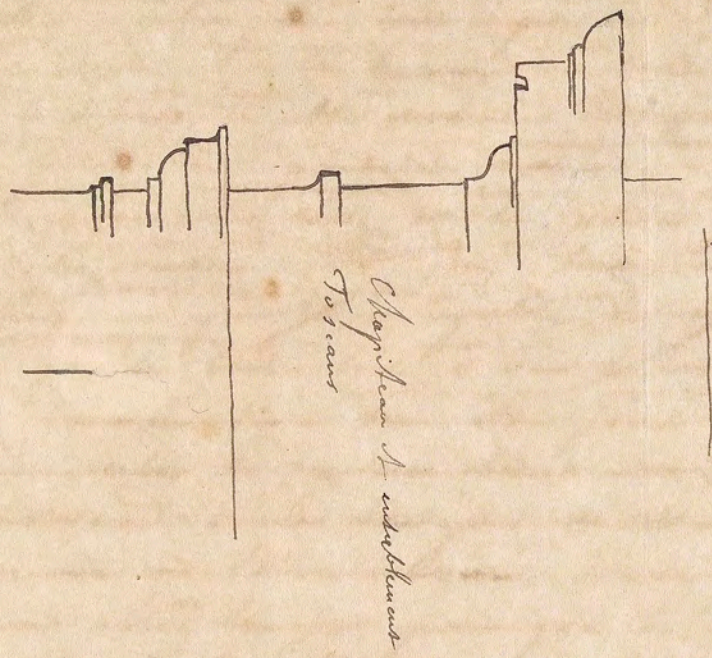 Chapiteau et entablement
Toscans